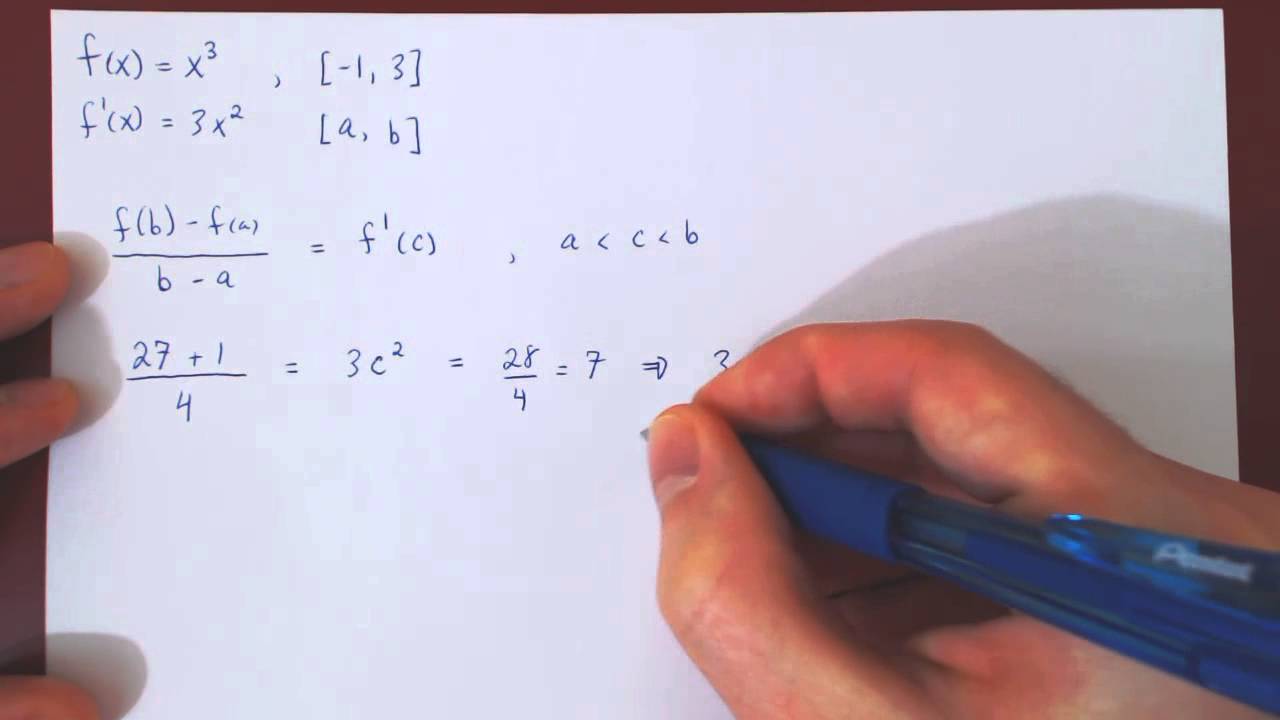 f(x) = x³ , [-1, 3]
f'(x) = 3x² [a, b]
f(b) - f(a) / b - a = f'(c) , a < c < b
27 + 1 / 4 = 3c² = 28/4 = 7 ⇒ 3
Pentel